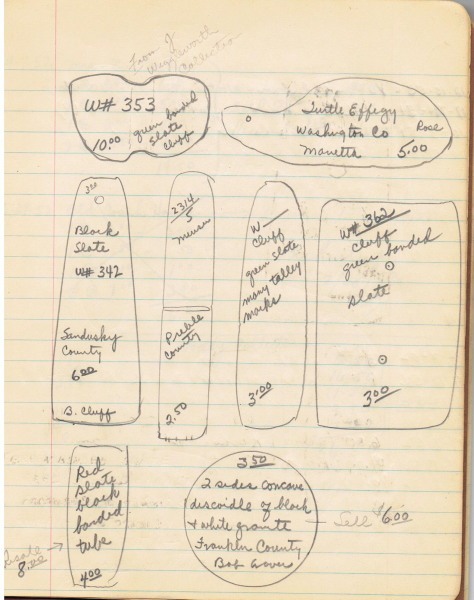 From J
Wigglesworth
Collection
W# 353
green banded
slate
Cluff
10.00
Turtle Effigy
Washington Co
Rose
Manetta 5.00
Black
Slate
W# 342
Sandusky
County
6.00
B. Cluff
2314
5
Preble
County
2.50
W
Cluff
green slate
many talley
marks
3.00
W# 362
Cluff
green banded
slate
3.00
Red
slate
black
banded
tube
4.00
8.00
3.50
2 sides concave
discoidle of black
+ white granite
Franklin County
Bob
Sell $6.00